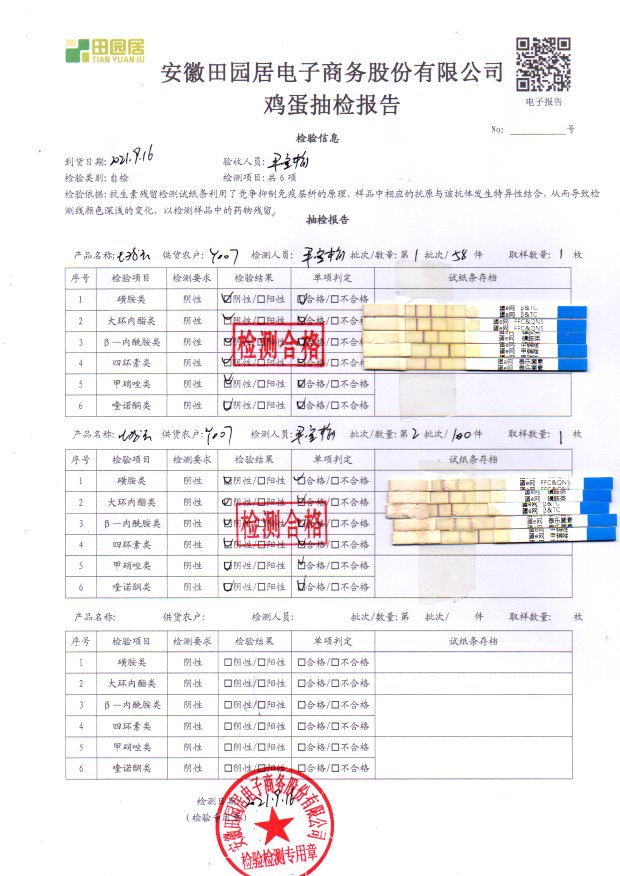 田园居
TIAN YUAN JU
安徽田园居电子商务股份有限公司
鸡蛋抽检报告
电子报告
No: ________号
检验信息
到货日期: 2021.9.16 验收人员:
检验类别: 自检 检测项目: 共 6 项
检验依据: 抗生素残留检测试纸条利用了竞争抑制免疫层析的原理, 样品中相应的抗原与该抗体发生特异性结合, 从而导致检
测线颜色深浅的变化, 以检测样品中的药物残留。
抽检报告
产品名称: 供货农户: Y007 检测人员: 批次/数量: 第 1 批次/ 58 件 取样数量: 1 枚
序号 检验项目 检测要求 检验结果 单项判定 试纸条存档
1 磺胺类 阴性 ☑阴性/□阳性 ☑合格/□不合格
2 大环内酯类 阴性 ☑阴性/□阳性 ☑合格/□不合格
3 β—内酰胺类 阴性 ☑阴性/□阳性 ☑合格/□不合格
4 四环素类 阴性 ☑阴性/□阳性 ☑合格/□不合格
5 甲硝唑 阴性 ☑阴性/□阳性 ☑合格/□不合格
6 喹诺酮类 阴性 ☑阴性/□阳性 ☑合格/□不合格
检测合格
β&TC
β&TC
FFC&QNS
FFC&QNS
磺胺类
磺胺类
甲硝唑
甲硝唑
泰乐菌素
泰乐菌素
产品名称: 供货农户: Y007 检测人员: 批次/数量: 第 2 批次/ 100 件 取样数量: 1 枚
序号 检验项目 检测要求 检验结果 单项判定 试纸条存档
1 磺胺类 阴性 ☑阴性/□阳性 ☑合格/□不合格
2 大环内酯类 阴性 ☑阴性/□阳性 ☑合格/□不合格
3 β—内酰胺类 阴性 ☑阴性/□阳性 ☑合格/□不合格
4 四环素类 阴性 ☑阴性/□阳性 ☑合格/□不合格
5 甲硝唑类 阴性 ☑阴性/□阳性 ☑合格/□不合格
6 喹诺酮类 阴性 ☑阴性/□阳性 ☑合格/□不合格
检测合格
FFC&QNS
磺胺类
β&TC
泰乐菌素
甲硝唑
产品名称: 供货农户: 检测人员: 批次/数量: 第 批次/ 件 取样数量: 枚
序号 检验项目 检测要求 检验结果 单项判定 试纸条存档
1 磺胺类 阴性 □阴性/□阳性 □合格/□不合格
2 大环内酯类 阴性 □阴性/□阳性 □合格/□不合格
3 β—内酰胺类 阴性 □阴性/□阳性 □合格/□不合格
4 四环素类 阴性 □阴性/□阳性 □合格/□不合格
5 甲硝唑类 阴性 □阴性/□阳性 □合格/□不合格
6 喹诺酮类 阴性 □阴性/□阳性 □合格/□不合格
检测日期: 2021.9.16
(检验专用章)
安徽田园居电子商务股份有限公司
检验检测专用章